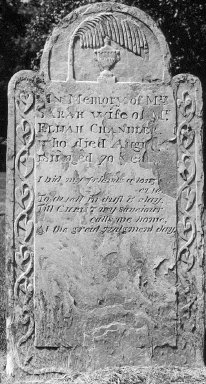 In Memory of Mrs
SARAH wife of Mr
ELIJAH CHANDLER
who died Augt
1811 aged 70 Years
I bid my friends a long
To dwell in dust & clay,
Till Christ my Saviour
calls me home,
At the great judgment day.